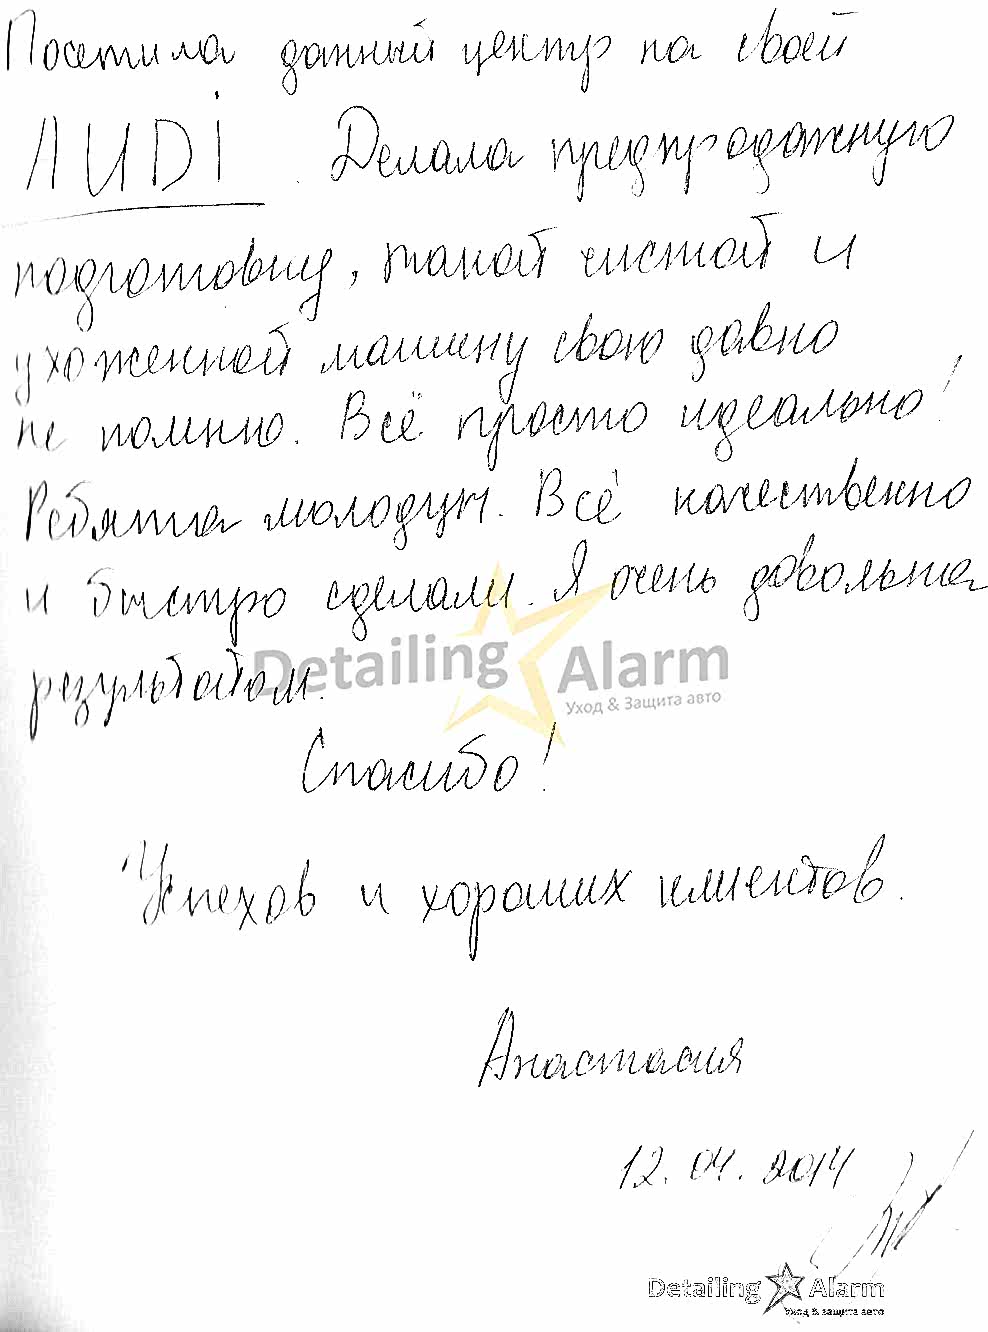 Посетила данный центр на своей
AUDi. Делала предпродажную
подготовку, такой чистой и
ухоженной машину свою давно
не помню. Всё просто идеально!
Ребята молодцы. Всё качественно
и быстро сделали. Я очень довольна
результатом.
Detailing Alarm
Уход & Защита авто
Спасибо!
Успехов и хороших клиентов.
Анастасия
12.04.2014
Detailing Alarm
Уход & защита авто